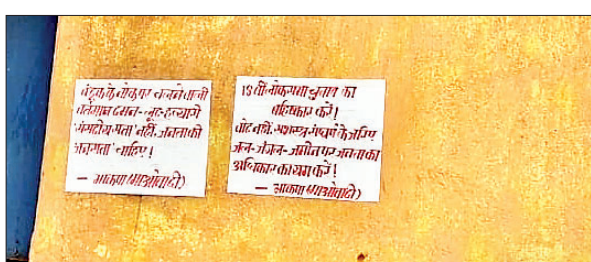 बंदूक के नोक पर चलने वाली
वर्तमान दमन-लूट-हत्यारी
संसदीय सत्ता नहीं, जनता की
जनसत्ता चाहिए!
— भाकपा (माओवादी)
18 वीं लोकसभा चुनाव का
बहिष्कार करें!
वोट नहीं, सशस्त्र संघर्ष के जरिए
जल-जंगल-जमीन पर जनता का
अधिकार कायम करें!
— भाकपा (माओवादी)